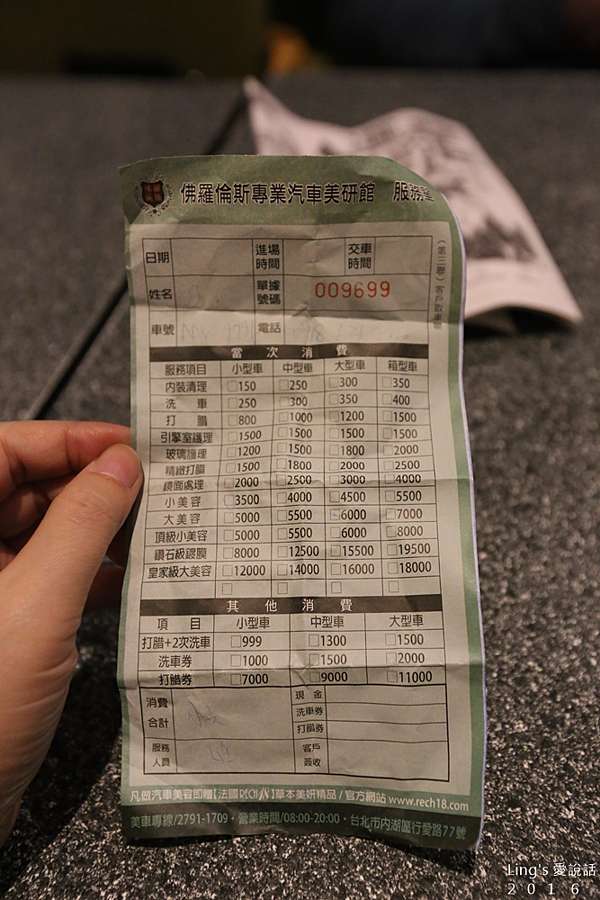 佛羅倫斯專業汽車美研館 服務單
日期 進場時間 交車時間
姓名 單據號碼 009699
車號 電話
當次消費
服務項目 小型車 中型車 大型車 箱型車
內裝清理 □150 □250 □300 □350
洗車 □250 □300 □350 □400
打腊 □800 □1000 □1200 □1500
引擎室護理 □1500 □1500 □1500 □1500
玻璃護理 □1200 □1500 □1800 □2000
精緻打腊 □1500 □1800 □2000 □2500
鏡面處理 □2000 □2500 □3000 □4000
小美容 □3500 □4000 □4500 □5500
大美容 □5000 □5500 □6000 □7000
頂級小美容 □5000 □5500 □6000 □8000
鑽石級鍍膜 □8000 □12500 □15500 □19500
皇家級大美容 □12000 □14000 □16000 □18000
其他消費
項目 小型車 中型車 大型車
打腊+2次洗車 □999 □1300 □1500
洗車券 □1000 □1500 □2000
打腊券 □7000 □9000 □11000
消費合計 現金
洗車券
打腊券
服務人員 客戶簽收
凡做汽車美容即贈【法國RECH八八】草本美妍精品/官方網站 www.rech18.com
美車專線/2791-1709・營業時間/08:00-20:00・台北市內湖區行愛路77號
(第三聯)
Ling's 愛說話
2016